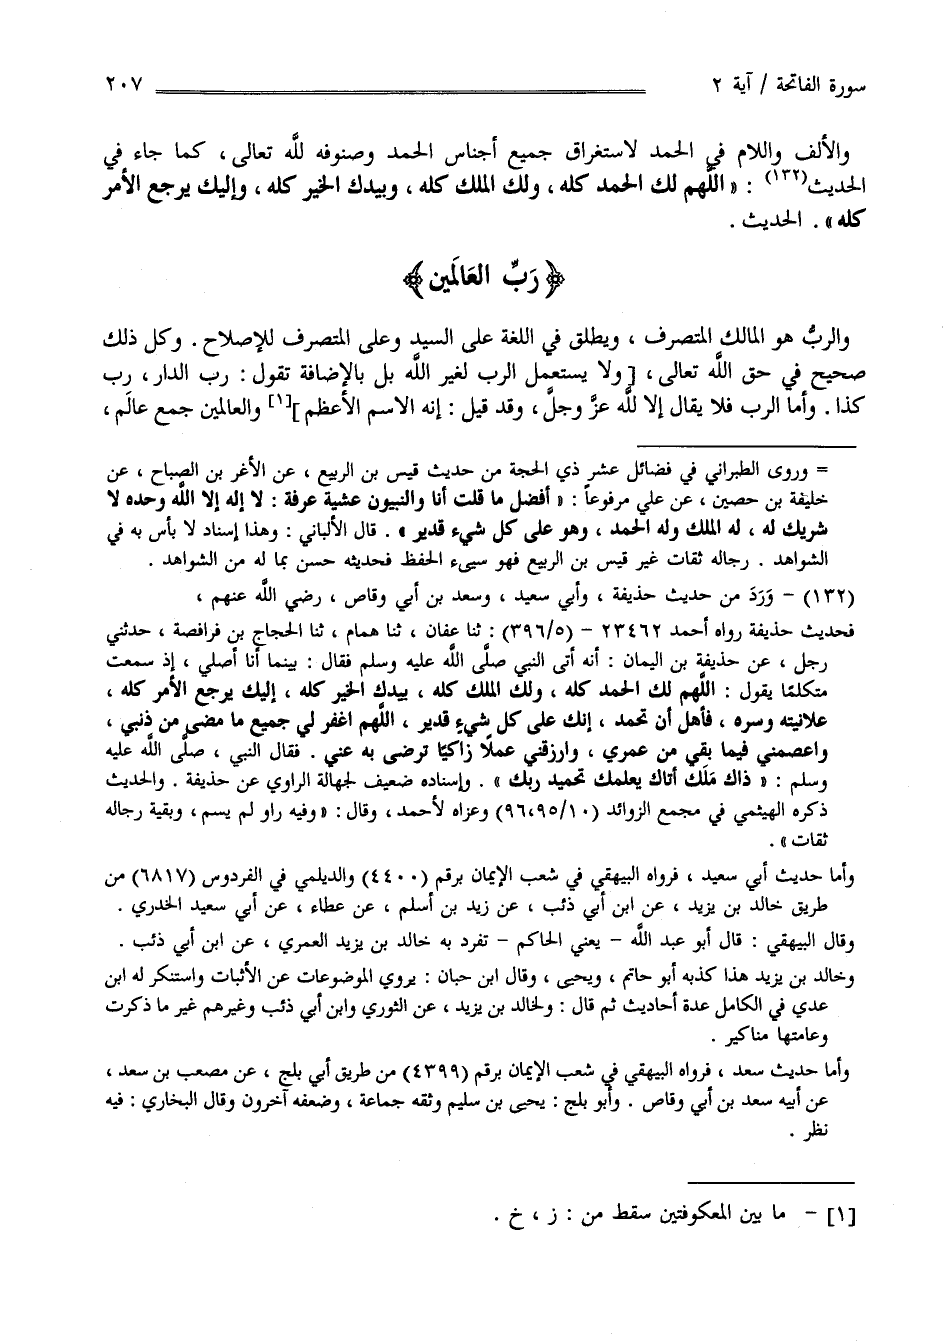 سورة الفاتحة / آية ٢ ٢٠٧
والألف واللام في الحمد لاستغراق جميع أجناس الحمد وصنوفه لله تعالى ، كما جاء في
الحديث(١٣٢) : « اللَّهم لك الحمد كله ، ولك الملك كله ، وبيدك الخير كله ، وإليك يرجع الأمر
كله » . الحديث .
﴿ رَبِّ العَالَمين ﴾
والربُّ هو المالك المتصرف ، ويطلق في اللغة على السيد وعلى المتصرف للإصلاح . وكل ذلك
صحيح في حق اللَّه تعالى ، [ ولا يستعمل الرب لغير اللَّه بل بالإضافة تقول : رب الدار ، رب
كذا . وأما الرب فلا يقال إلا للَّه عزَّ وجلَّ ، وقد قيل : إنه الاسم الأعظم ][١] والعالمين جمع عالَم ،
= وروى الطبراني في فضائل عشر ذي الحجة من حديث قيس بن الربيع ، عن الأغر بن الصباح ، عن
خليفة بن حصين ، عن علي مرفوعاً : « أفضل ما قلت أنا والنبيون عشية عرفة : لا إله إلا اللَّه وحده لا
شريك له ، له الملك وله الحمد ، وهو على كل شيء قدير » . قال الألباني : وهذا إسناد لا بأس به في
الشواهد . رجاله ثقات غير قيس بن الربيع فهو سيىء الحفظ فحديثه حسن بما له من الشواهد .
(١٣٢) - وَرَدَ من حديث حذيفة ، وأبي سعيد ، وسعد بن أبي وقاص ، رضي اللَّه عنهم ،
فحديث حذيفة رواه أحمد ٢٣٤٦٢ - (٣٩٦/٥) : ثنا عفان ، ثنا همام ، ثنا الحجاج بن فرافصة ، حدثني
رجل ، عن حذيفة بن اليمان : أنه أتى النبي صلَّى اللَّه عليه وسلم فقال : بينما أنا أصلي ، إذ سمعت
متكلمًا يقول : اللَّهم لك الحمد كله ، ولك الملك كله ، بيدك الخير كله ، إليك يرجع الأمر كله ،
علانيته وسره ، فأهل أن تحمد ، إنك على كل شيءٍ قدير ، اللَّهم اغفر لي جميع ما مضى من ذنبي ،
واعصمني فيما بقي من عمري ، وارزقني عملًا زاكيًا ترضى به عني . فقال النبي ، صلَّى اللَّه عليه
وسلم : « ذاك مَلَك أتاك يعلمك تحميد ربك » . وإسناده ضعيف لجهالة الراوي عن حذيفة . والحديث
ذكره الهيثمي في مجمع الزوائد (٩٦،٩٥/١٠) وعزاه لأحمد ، وقال : «وفيه راو لم يسم ، وبقية رجاله
ثقات » .
وأما حديث أبي سعيد ، فرواه البيهقي في شعب الإيمان برقم (٤٤٠٠) والديلمي في الفردوس (٦٨١٧) من
طريق خالد بن يزيد ، عن ابن أبي ذئب ، عن زيد بن أسلم ، عن عطاء ، عن أبي سعيد الخدري .
وقال البيهقي : قال أبو عبد اللَّه - يعني الحاكم - تفرد به خالد بن يزيد العمري ، عن ابن أبي ذئب .
وخالد بن يزيد هذا كذبه أبو حاتم ، ويحيى ، وقال ابن حبان : يروي الموضوعات عن الأثبات واستنكر له ابن
عدي في الكامل عدة أحاديث ثم قال : ولخالد بن يزيد ، عن الثوري وابن أبي ذئب وغيرهم غير ما ذكرت
وعامتها مناكير .
وأما حديث سعد ، فرواه البيهقي في شعب الإيمان برقم (٤٣٩٩) من طريق أبي بلج ، عن مصعب بن سعد ،
عن أبيه سعد بن أبي وقاص . وأبو بلج : يحيى بن سليم وثقه جماعة ، وضعفه آخرون وقال البخاري : فيه
نظر .
[١] - ما بين المعكوفتين سقط من : ز ، خ .